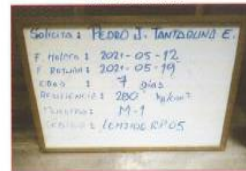 Solicita: PEDRO J. TANTARUNA E.
F. Moldeo: 2021-05-12
F. Rotura: 2021-05-19
EDAD: 7 días
RESISTENCIA: 280 kg/cm²
MUESTRA: M-1